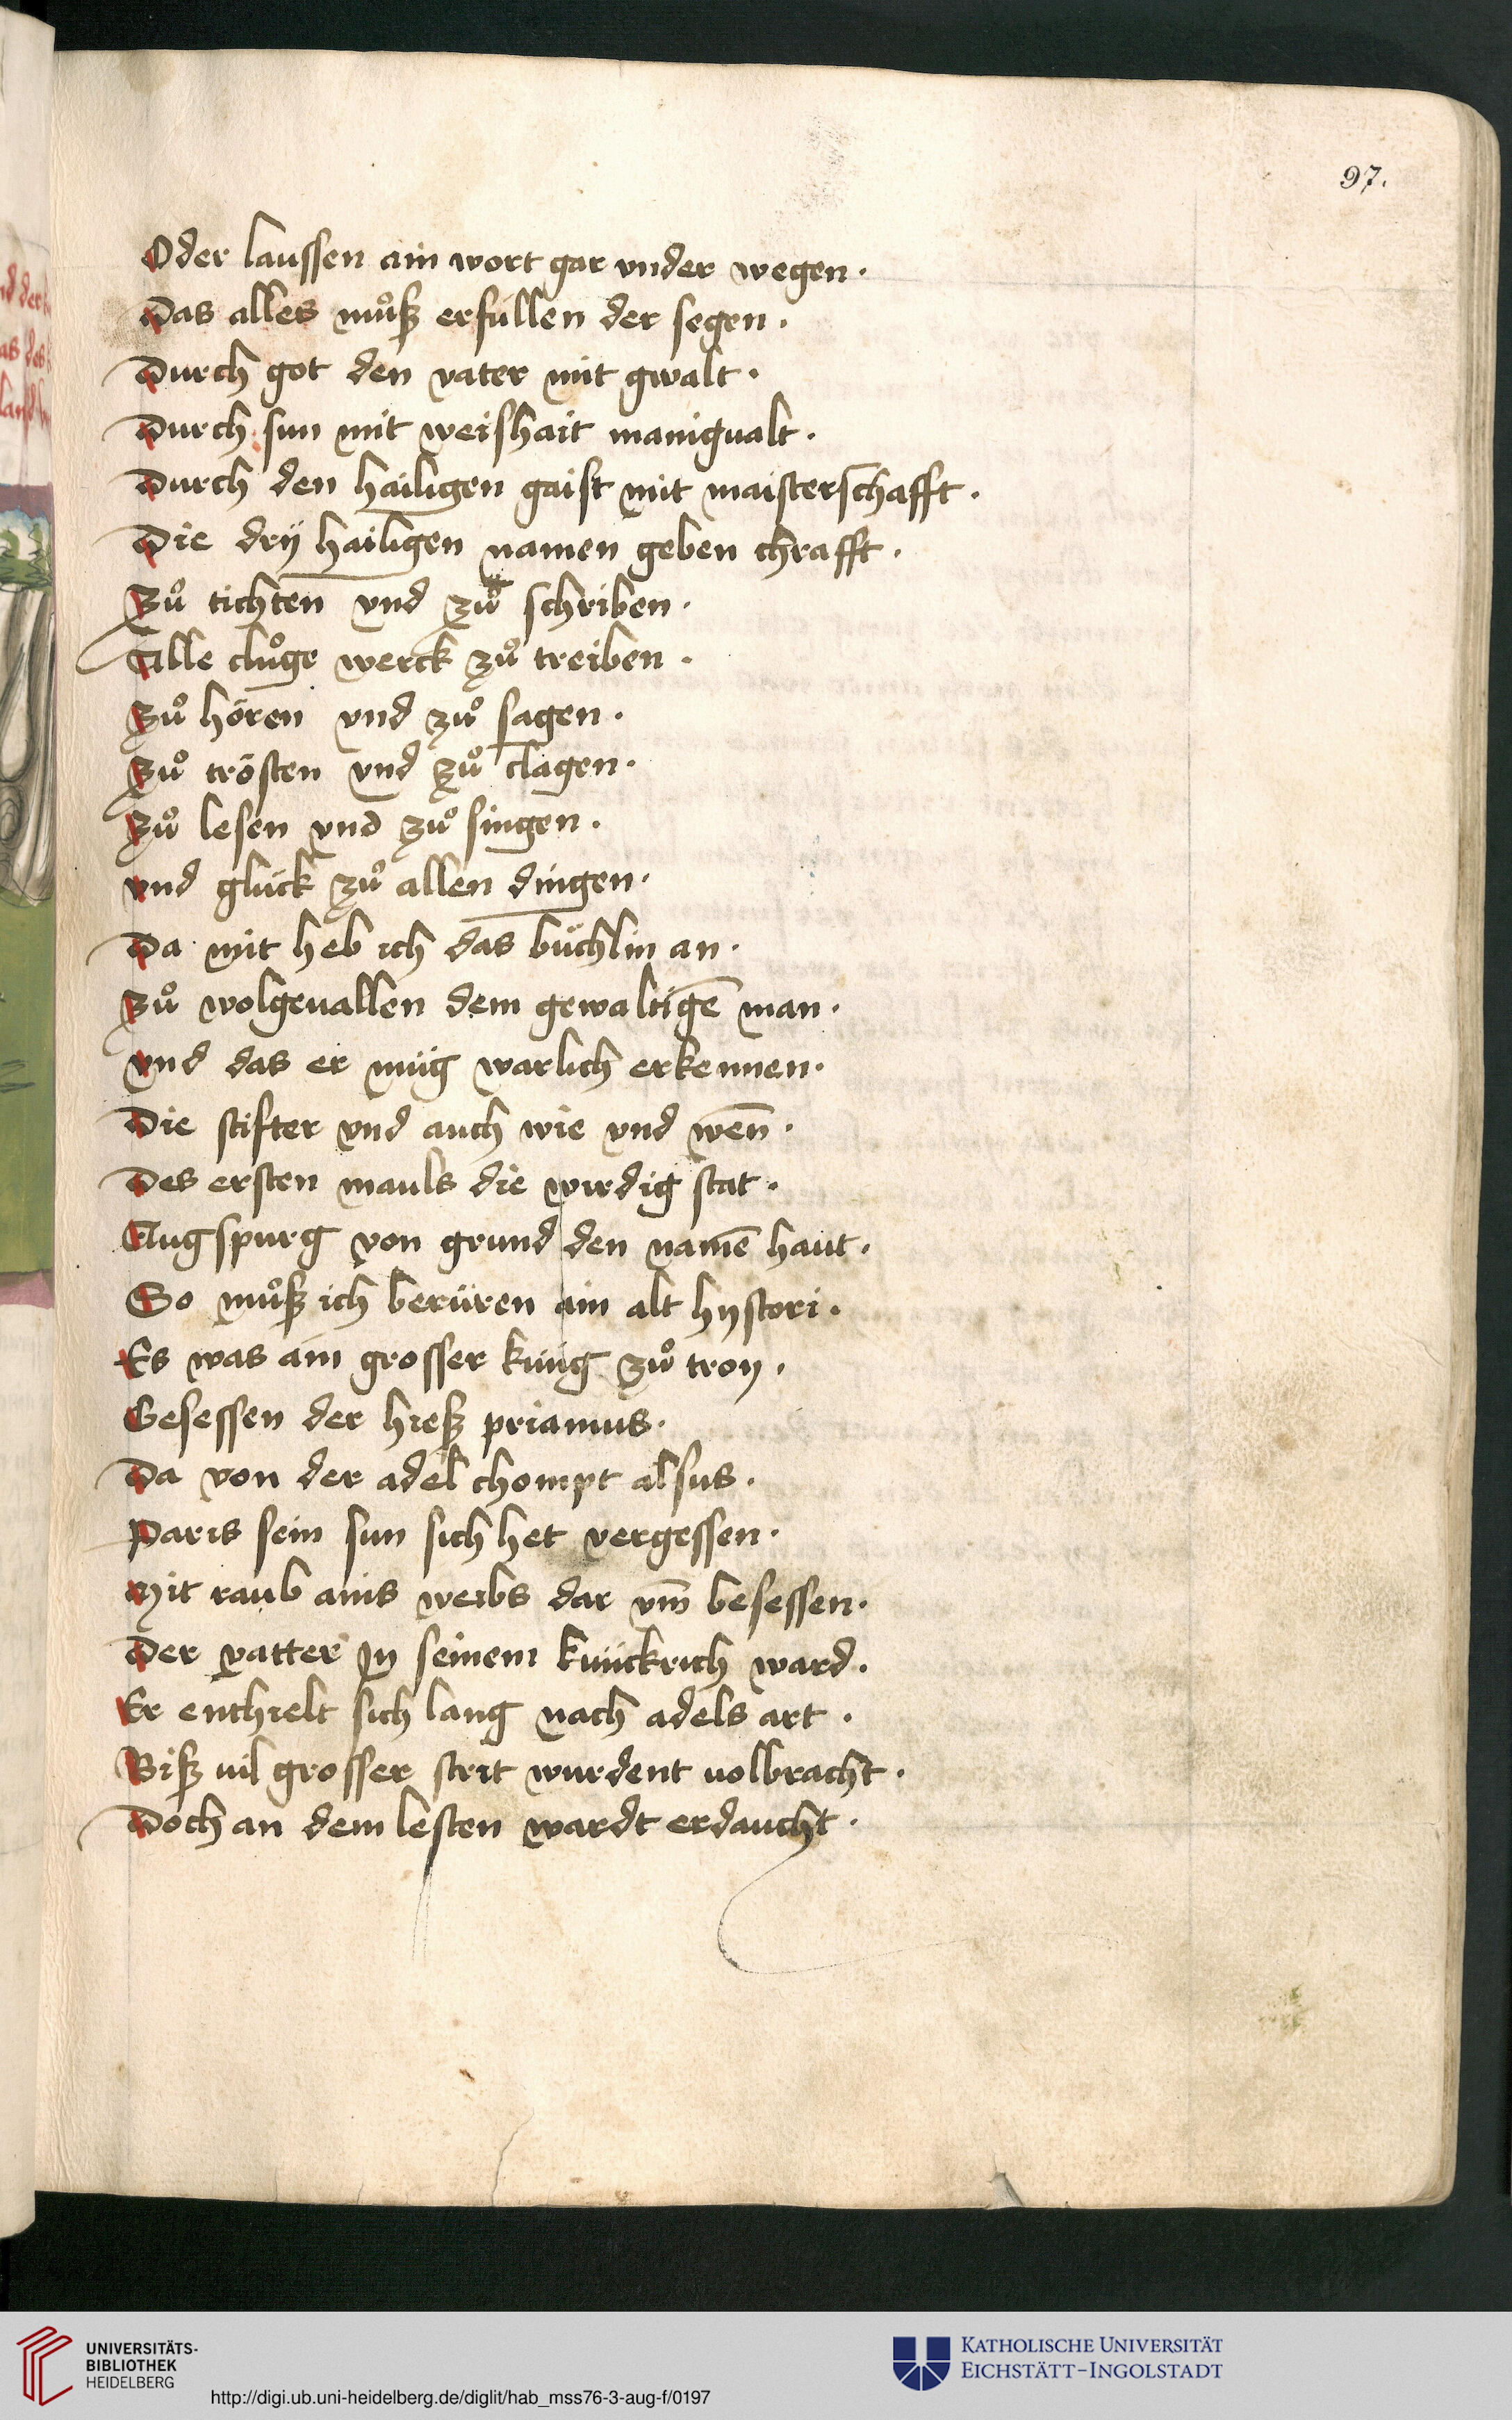 97.
Oder laussen ain wort gar vnder wegen ·
Das alles můß erfüllen der segen ·
Durch got den vater mit gwalt ·
Durch sun mit weishait manigualt ·
Durch den hailigen gaist mit maisterschafft ·
Die drÿ hailigen namen geben chrafft ·
Zů tichten vnd zů schriben ·
Alle clůge werck zů treiben ·
Zů hören vnd zů sagen ·
Zů trösten vnd zů clagen ·
Zů lesen vnd zů singen ·
vnd glück zů allen dingen ·
Da mit heb ich das büchlin an ·
Zů wolgeuallen dem gewaltigē man ·
vnd das er müg warlich erkennen ·
Die stifter vnd auch wie vnd wen̄ ·
Des ersten mauls die wirdig stat ·
Augspurg von grund den namē haut ·
So můß ich berüren ain alt hystori ·
Es was ain grosser küng zů troy ·
Gesessen der hieß priamus ·
Da von der adel chompt alsus ·
Paris sein sun sich het vergessen ·
Mit raub ains weibs dar vm̄ besessen ·
Der vatter Jn seinem künckrich ward ·
Er enthielt sich lang nach adels art ·
Biß uil grosser strit wurdent uolbracht ·
Doch an dem lesten wardt erdaucht ·
UNIVERSITÄTS-
BIBLIOTHEK
HEIDELBERG
http://digi.ub.uni-heidelberg.de/diglit/hab_mss76-3-aug-f/0197
KATHOLISCHE UNIVERSITÄT
EICHSTÄTT-INGOLSTADT